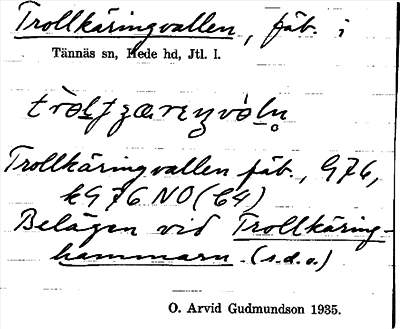 Trollkäringvallen, fäb. i
Tännäs sn, Hede hd, Jtl. l.
Trollkäringvallen fäb., G76,
kG76 NO (C4)
Belägen vid Trollkäring-
hammarn. (s.d.o.)
O. Arvid Gudmundson 1935.